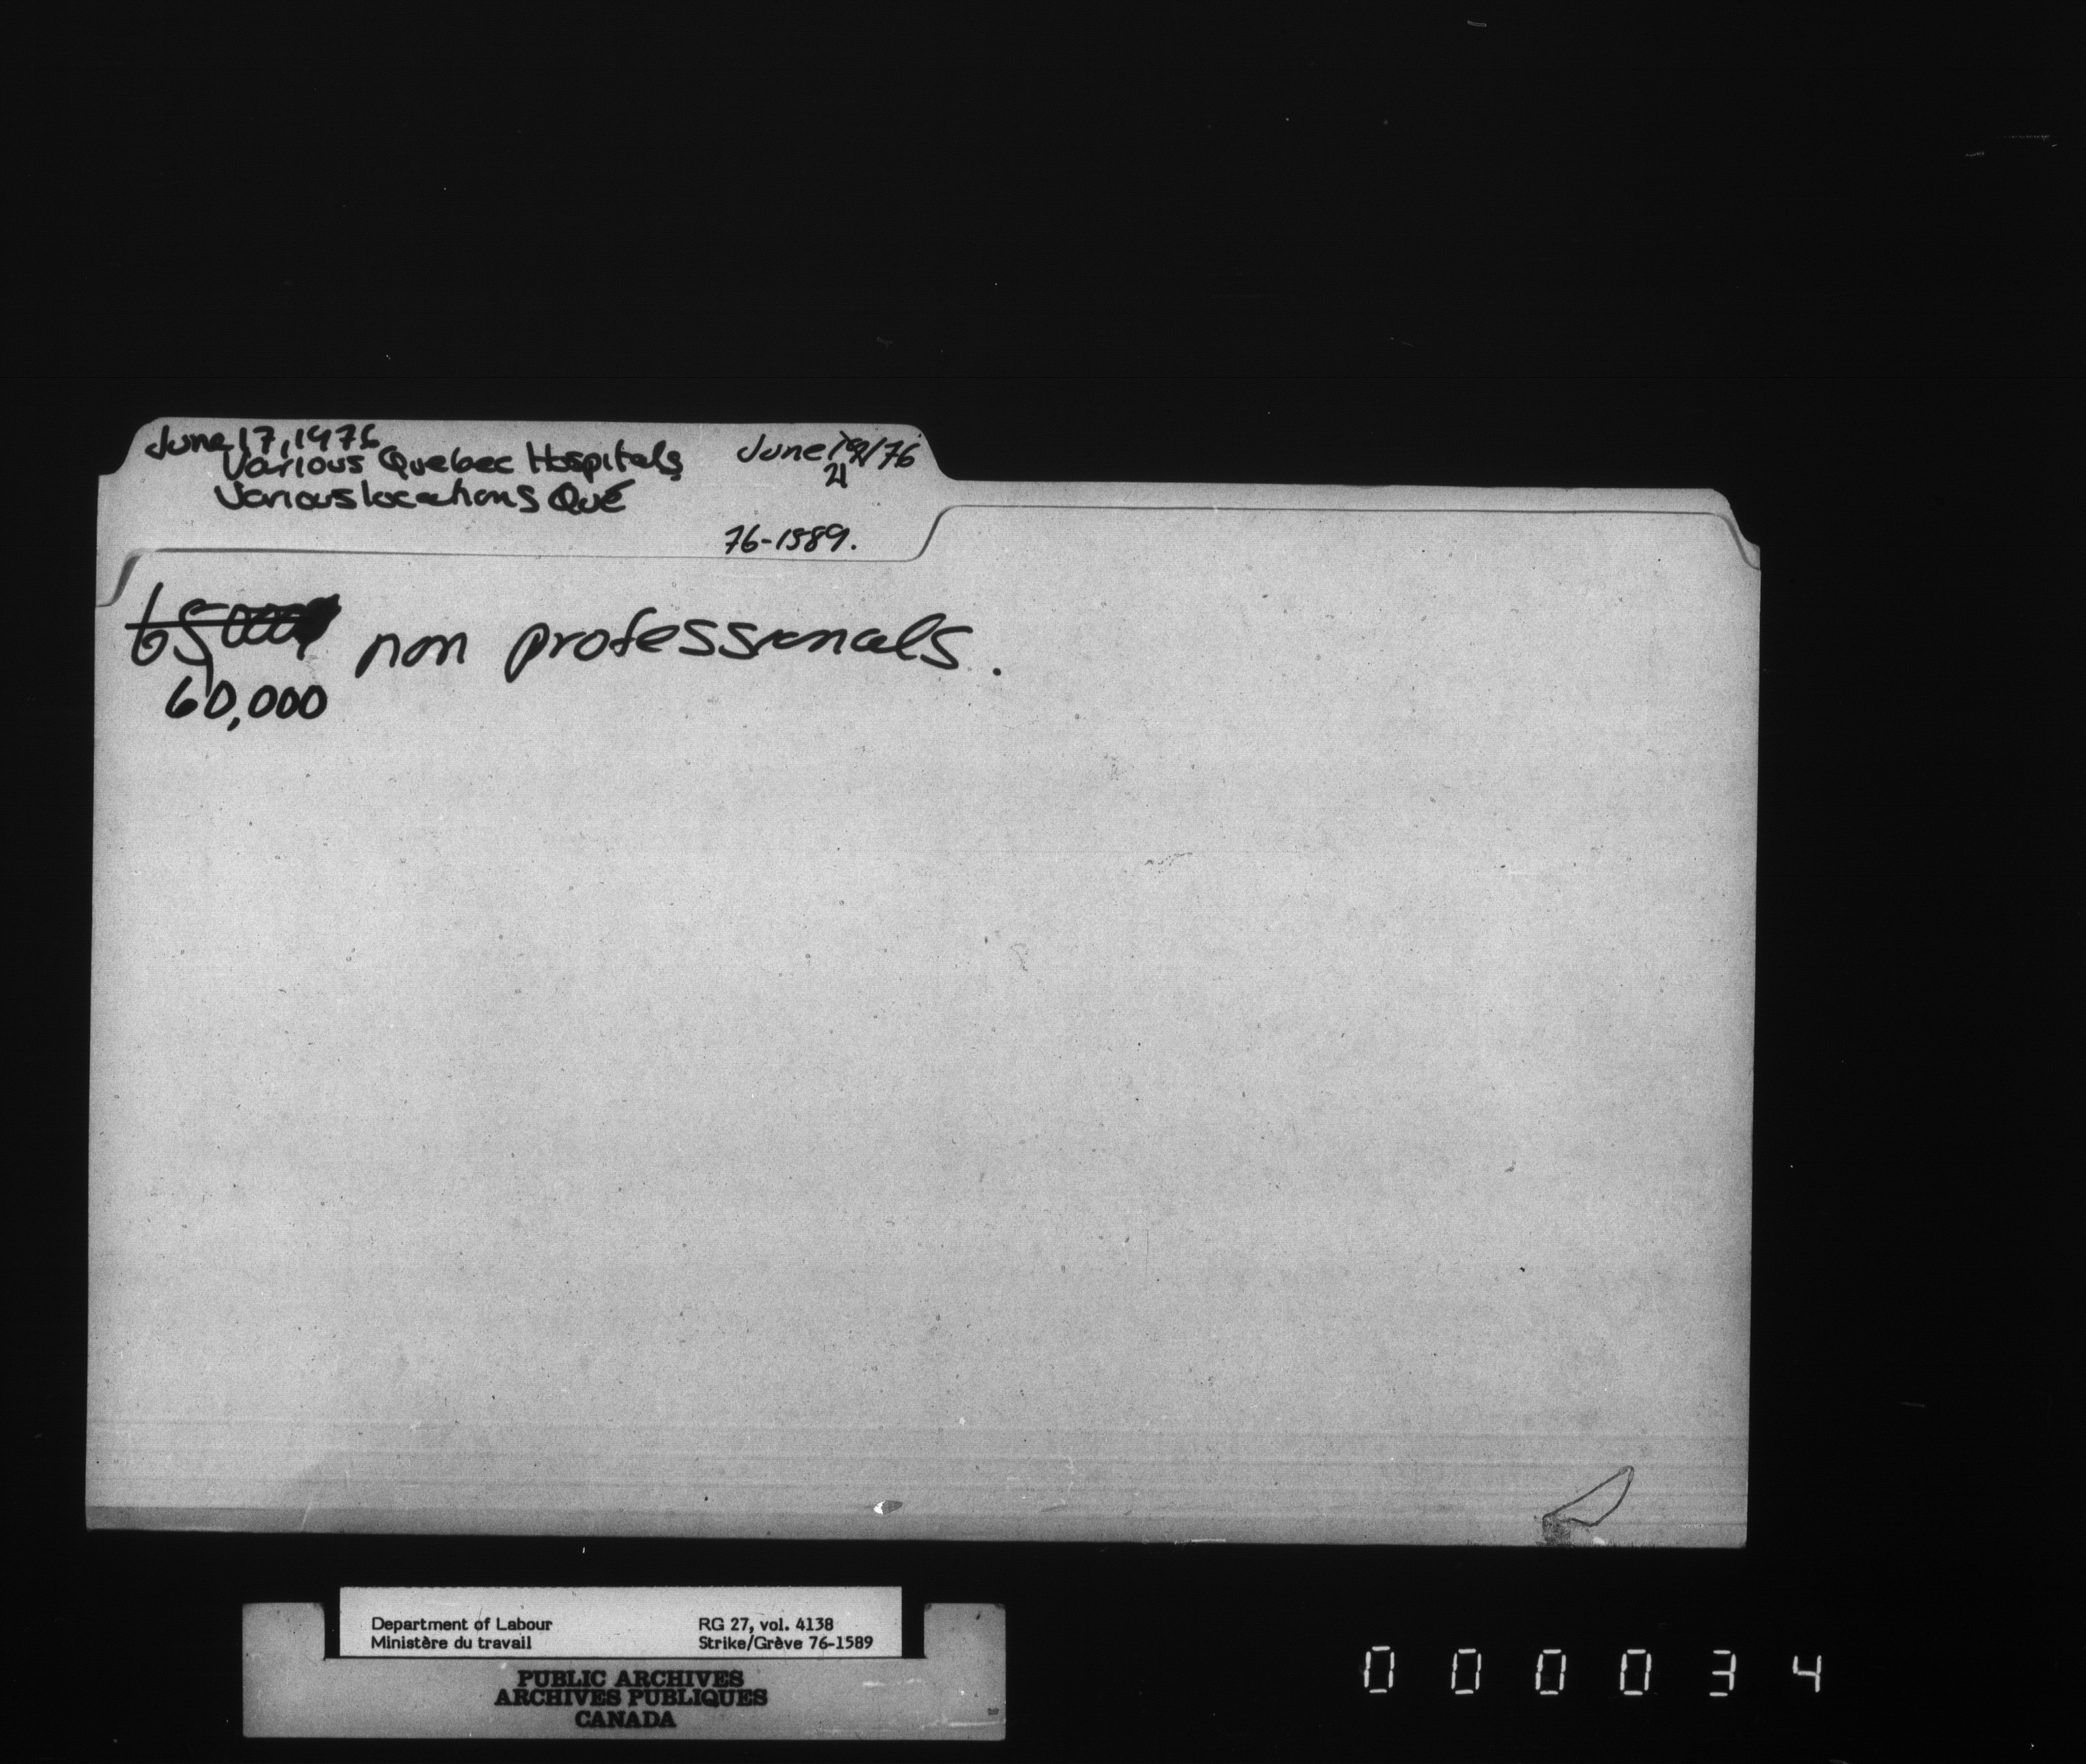 June 17, 1976
Various Quebec Hospitals
Various locations Qué
June /76
21
76-1589.
65,000 non professionals.
60,000
Department of Labour
Ministère du travail
RG 27, vol. 4138
Strike/Grève 76-1589
PUBLIC ARCHIVES
ARCHIVES PUBLIQUES
CANADA
000034